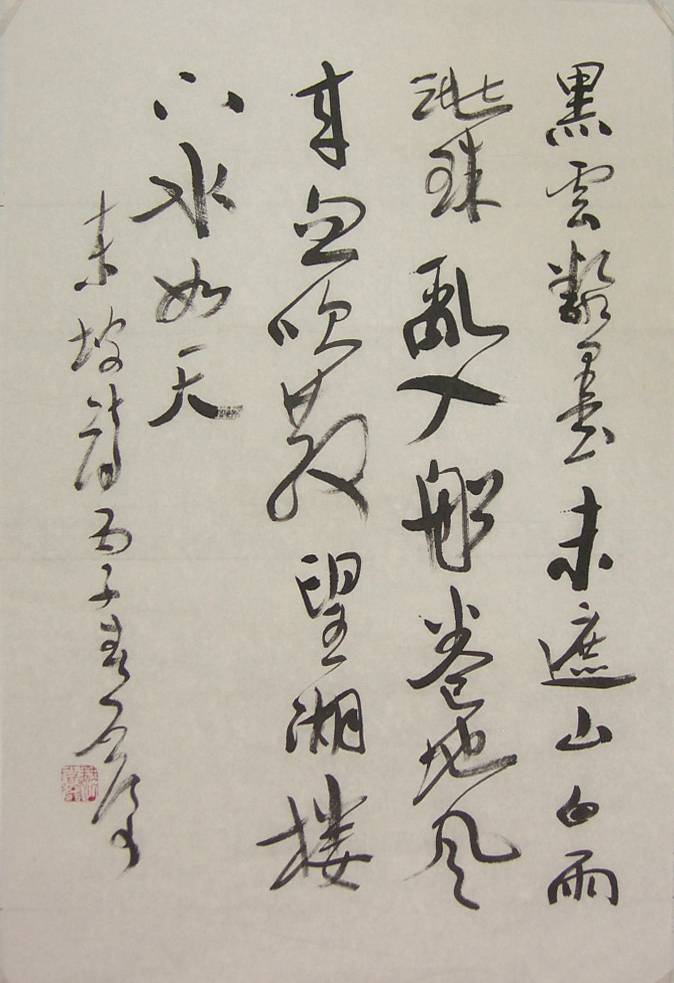 黑雲翻墨未遮山白雨
跳珠亂入船卷地風
来忽吹散望湖樓
下水如天
東坡詩丙子春